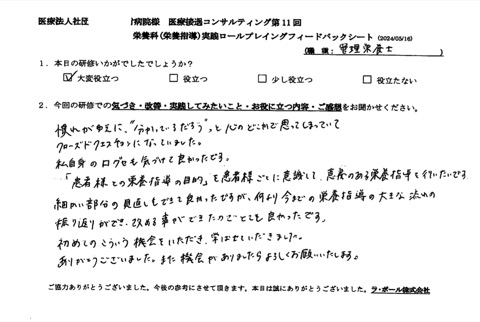 医療法人社団　病院様　医療接遇コンサルティング第11回
栄養科(栄養指導)実践ロールプレイングフィードバックシート(2024/05/16)
(職種：管理栄養士　)
1．本日の研修いかがでしたでしょうか？
☑大変役立つ　□役立つ　□少し役立つ　□役立たない
2．今回の研修での気づき・改善・実践してみたいこと・お役に立つ内容・ご感想をお聞かせください。
慣れがゆえに、"分かっているだろう"と心のどこかで思ってしまっていて
クローズドクエスチョンになっていました。
私自身のログセも気づけて良かったです。
「患者様との栄養指導の目的」を患者様ごとに意識して、意義のある栄養指導を行いたいです。
細かい部分の見直しもできて良かったですが、何より今までの栄養指導の大まな流れの
振り返りができ、改める事ができたのがとても良かったです。
初めてのこういう機会をいただき、学ばせていただきました。
ありがとうございました。また機会がありましたらよろしくお願いいたします。
ご協力ありがとうございました。今後の参考にさせて頂きます。本日は誠にありがとうございました。ラ・ポール株式会社